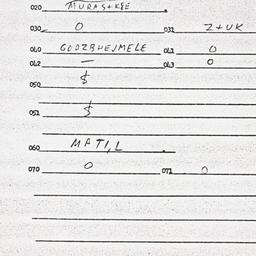 020 MURAS+KSE
030 O 031 Z+UK
040 GODZBHEJMELE 041 O
042 — 043 O
050 $
051 $
060 MATI,L
070 O 071 O